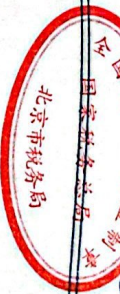 全国
监制章
国家税务总局
北京市税务局